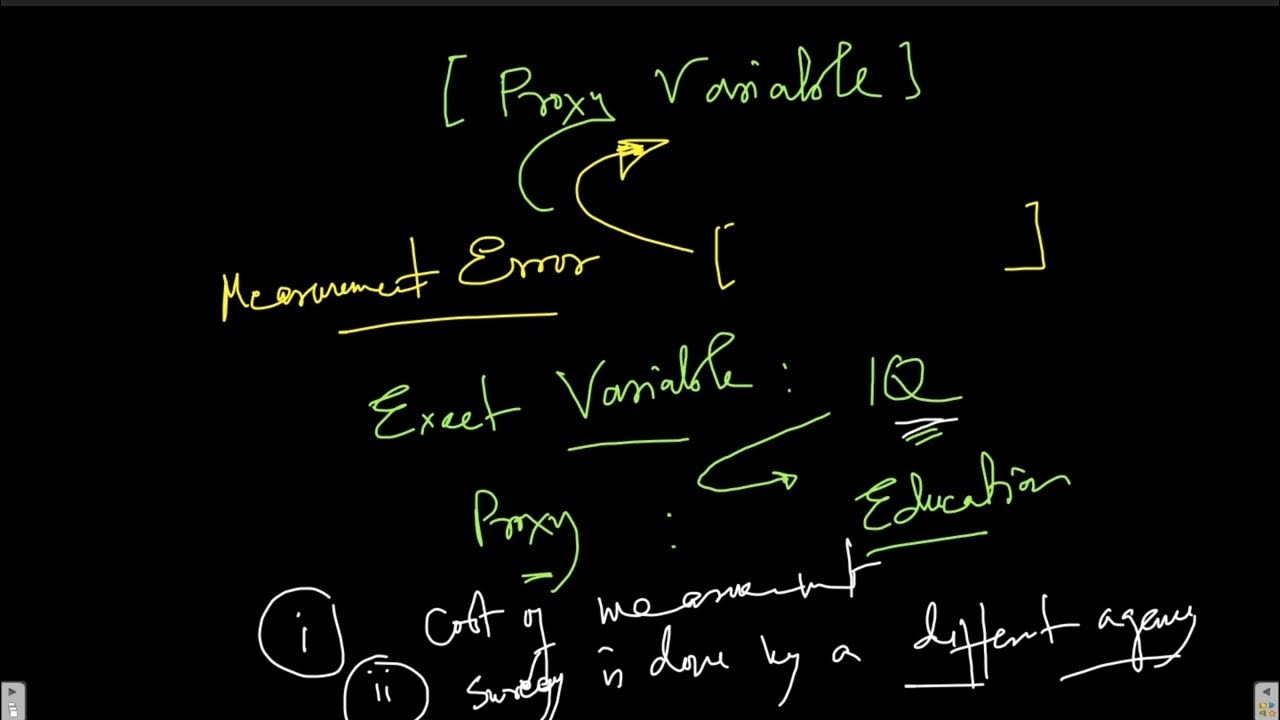 [ Proxy Variable ]
Measurement Error [ ]
Exact Variable : IQ
Proxy : Education
i cost of measurement
ii survey is done by a different agency